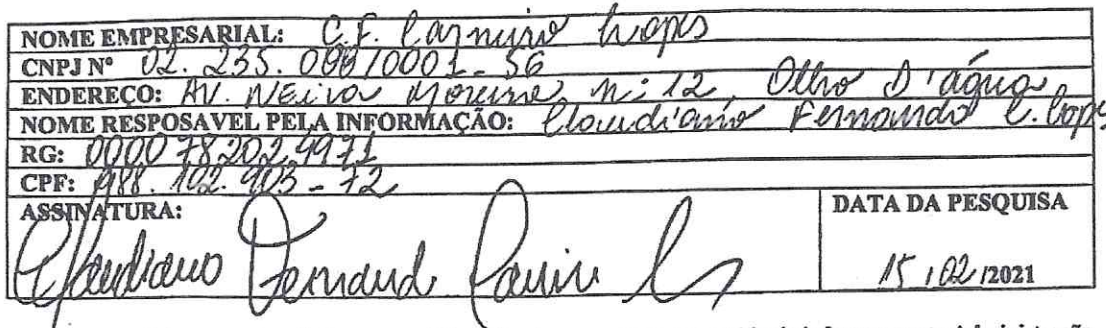 NOME EMPRESARIAL: C.F. Carneiro Lopes
CNPJ Nº 02.235.008/0001-56
ENDEREÇO: AV. Neiva Moreira, nº 12, Olho D'água
NOME RESPOSAVEL PELA INFORMAÇÃO: Claudiano Fernando C. Lopes
RG: 000078202 9971
CPF: 988.102.903-72
ASSINATURA: DATA DA PESQUISA
Claudiano Fernand
15/02/2021